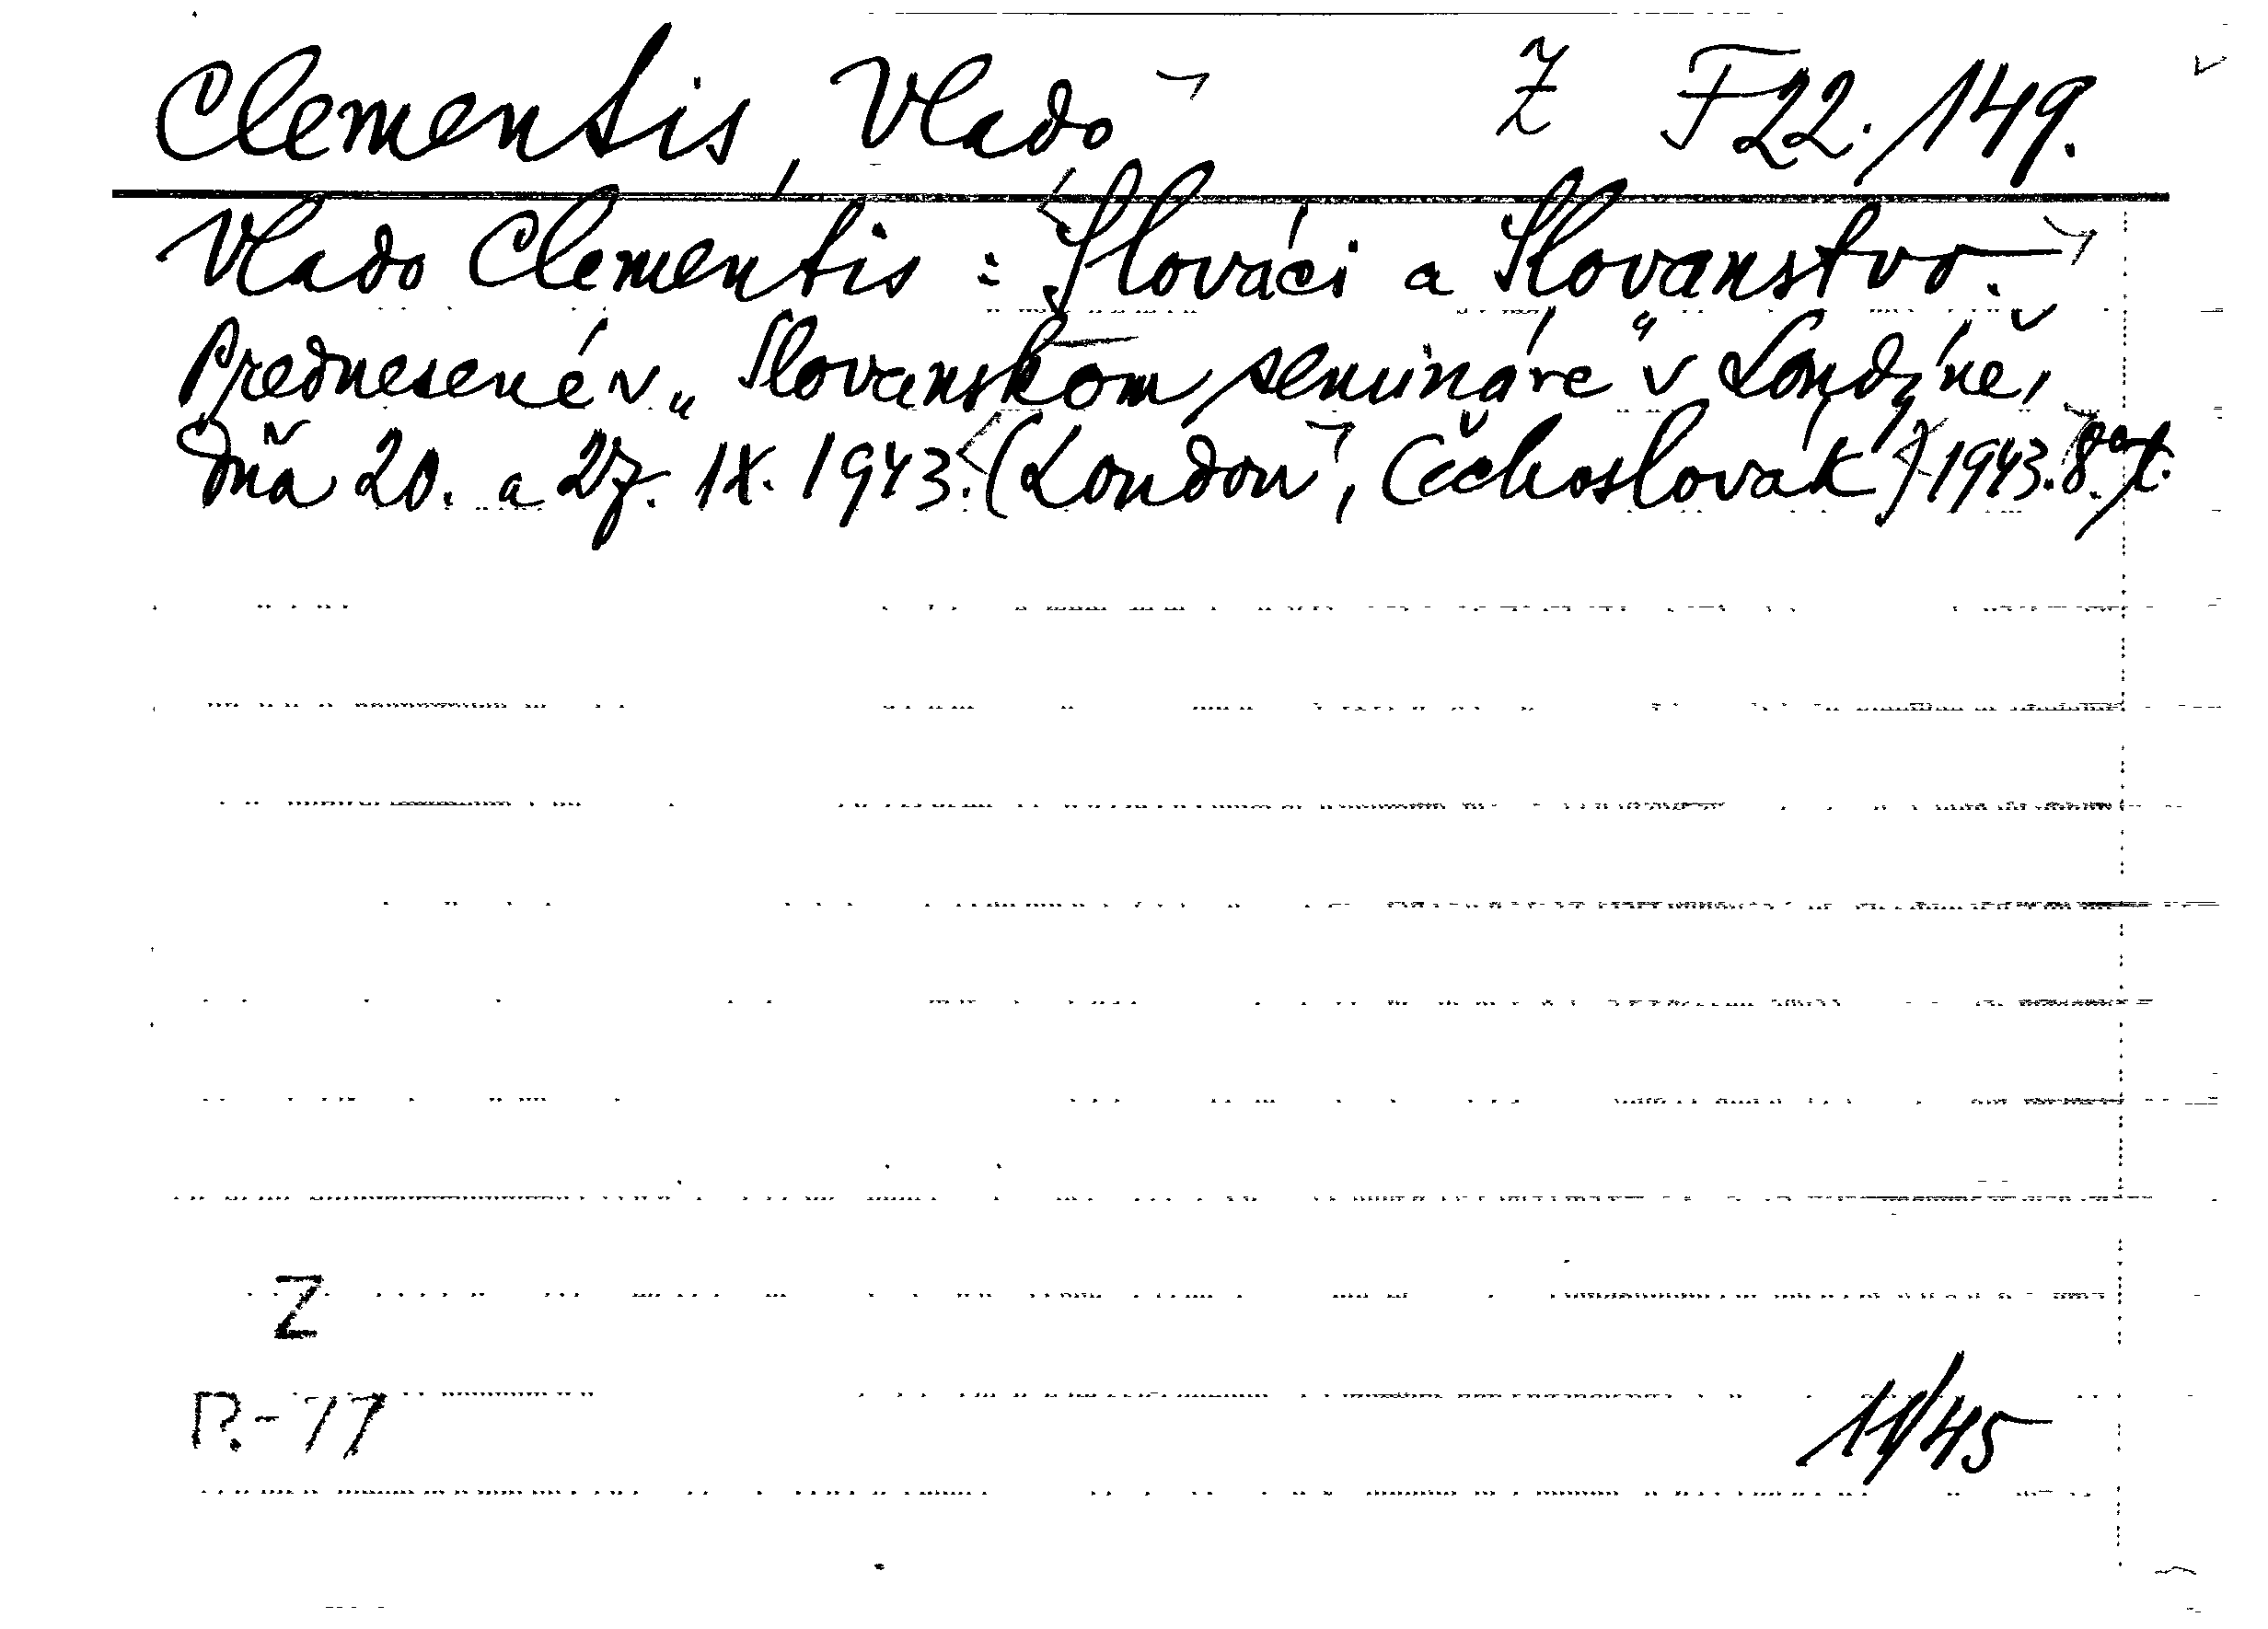 Clementis, Vlado Z F 22./149.
Vlado Clementis: Slováci a Slovanstvo.
Prednesené v „Slovanskom seminári“ v Londýne,
dňa 20. a 27. IX. 1943. (London, Čechoslovák) 1943. 8°
Z
R-77
11/45